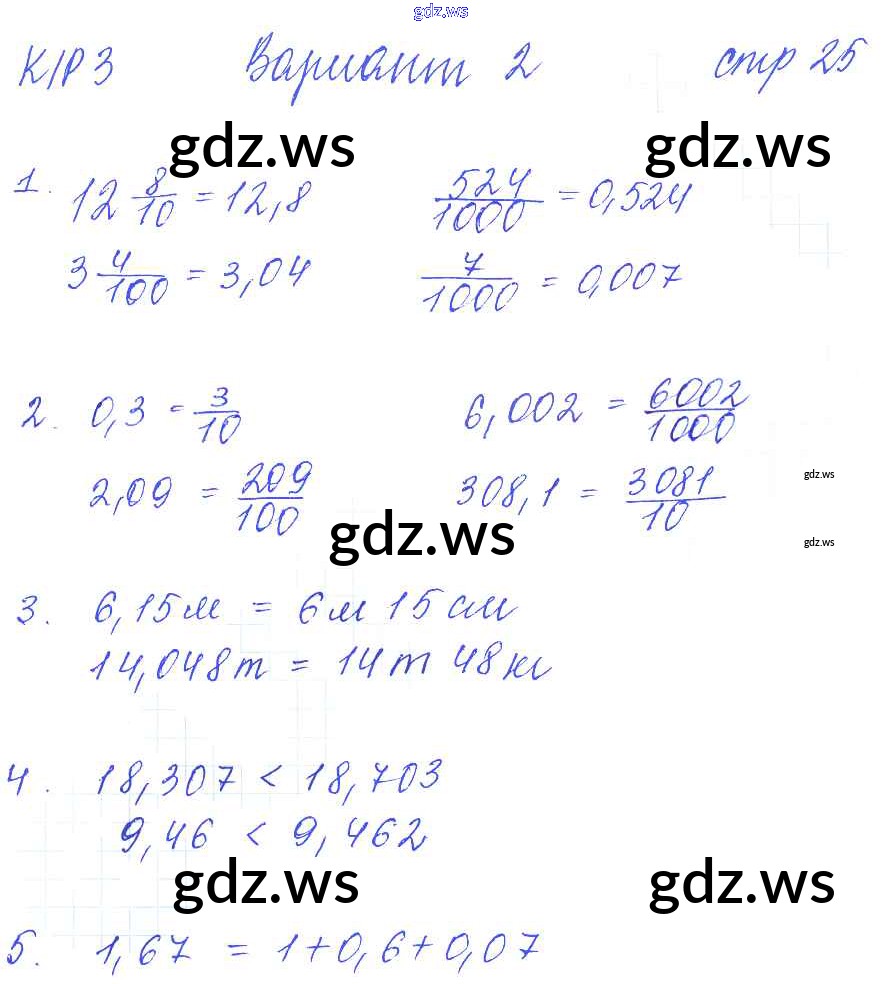 gdz.ws
К/Р 3 Вариант 2 стр 25
gdz.ws gdz.ws
1. 12 8/10 = 12,8 524/1000 = 0,524
3 4/100 = 3,04 7/1000 = 0,007
2. 0,3 = 3/10 6,002 = 6002/1000
2,09 = 209/100 308,1 = 3081/10
gdz.ws
gdz.ws
gdz.ws
3. 6,15 м = 6 м 15 см
14,048 т = 14 т 48 кг
4. 18,307 < 18,703
9,46 < 9,462
gdz.ws gdz.ws
5. 1,67 = 1+0,6+0,07